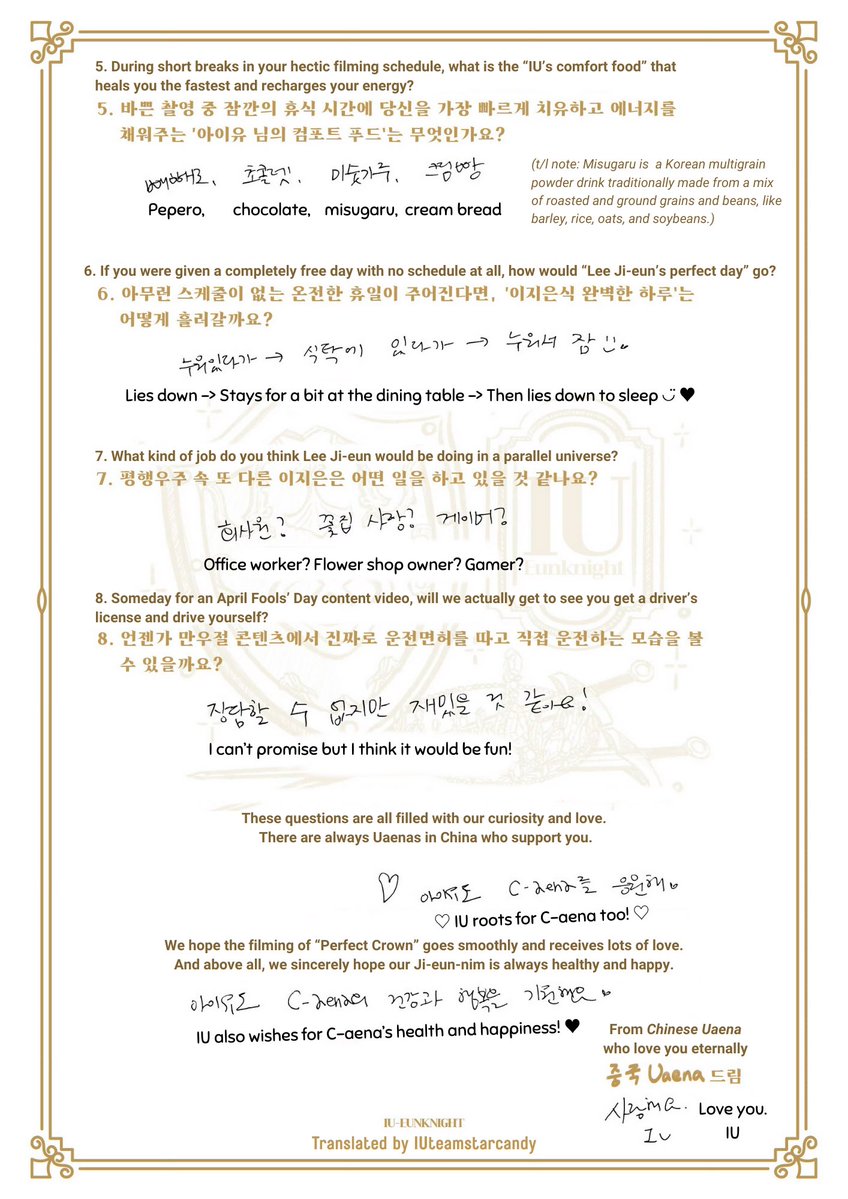 5. During short breaks in your hectic filming schedule, what is the “IU’s comfort food” that
heals you the fastest and recharges your energy?
5. 바쁜 촬영 중 잠깐의 휴식 시간에 당신을 가장 빠르게 치유하고 에너지를
채워주는 '아이유 님의 컴포트 푸드'는 무엇인가요?
빼빼로, 초콜렛, 미숫가루, 크림빵
Pepero, chocolate, misugaru, cream bread
(t/l note: Misugaru is a Korean multigrain
powder drink traditionally made from a mix
of roasted and ground grains and beans, like
barley, rice, oats, and soybeans.)
6. If you were given a completely free day with no schedule at all, how would “Lee Ji-eun’s perfect day” go?
6. 아무런 스케줄이 없는 온전한 휴일이 주어진다면, '이지은식 완벽한 하루'는
어떻게 흘러갈까요?
누워있다가 → 식탁에 있다가 → 누워서 잠
Lies down –> Stays for a bit at the dining table –> Then lies down to sleep ♥
7. What kind of job do you think Lee Ji-eun would be doing in a parallel universe?
7. 평행우주 속 또 다른 이지은은 어떤 일을 하고 있을 것 같나요?
회사원? 꽃집 사장? 게이머?
Office worker? Flower shop owner? Gamer?
IU
Eunknight
8. Someday for an April Fools’ Day content video, will we actually get to see you get a driver’s
license and drive yourself?
8. 언젠가 만우절 콘텐츠에서 진짜로 운전면허를 따고 직접 운전하는 모습을 볼
수 있을까요?
장담할 수 없지만 재밌을 것 같아요!
I can’t promise but I think it would be fun!
These questions are all filled with our curiosity and love.
There are always Uaenas in China who support you.
♡ 아이유도 C-aena를 응원해
♡ IU roots for C-aena too! ♡
We hope the filming of “Perfect Crown” goes smoothly and receives lots of love.
And above all, we sincerely hope our Ji-eun-nim is always healthy and happy.
아이유도 C-aena의 건강과 행복을 기원해요
IU also wishes for C-aena’s health and happiness! ♥
From Chinese Uaena
who love you eternally
중국 Uaena 드림
사랑해요. Love you.
IU IU
IU-EUNKNIGHT
Translated by IUteamstarcandy